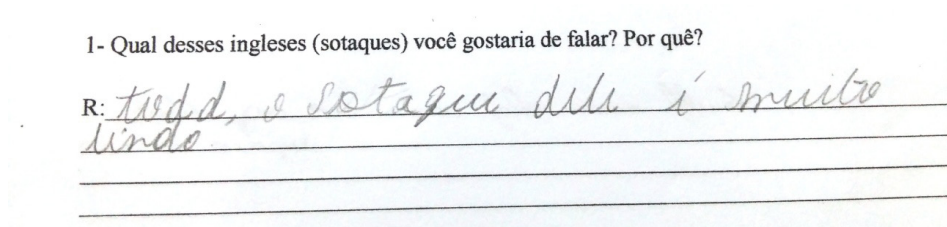 1- Qual desses ingleses (sotaques) você gostaria de falar? Por quê?
R: todd, o sotaque dele é muito
lindo